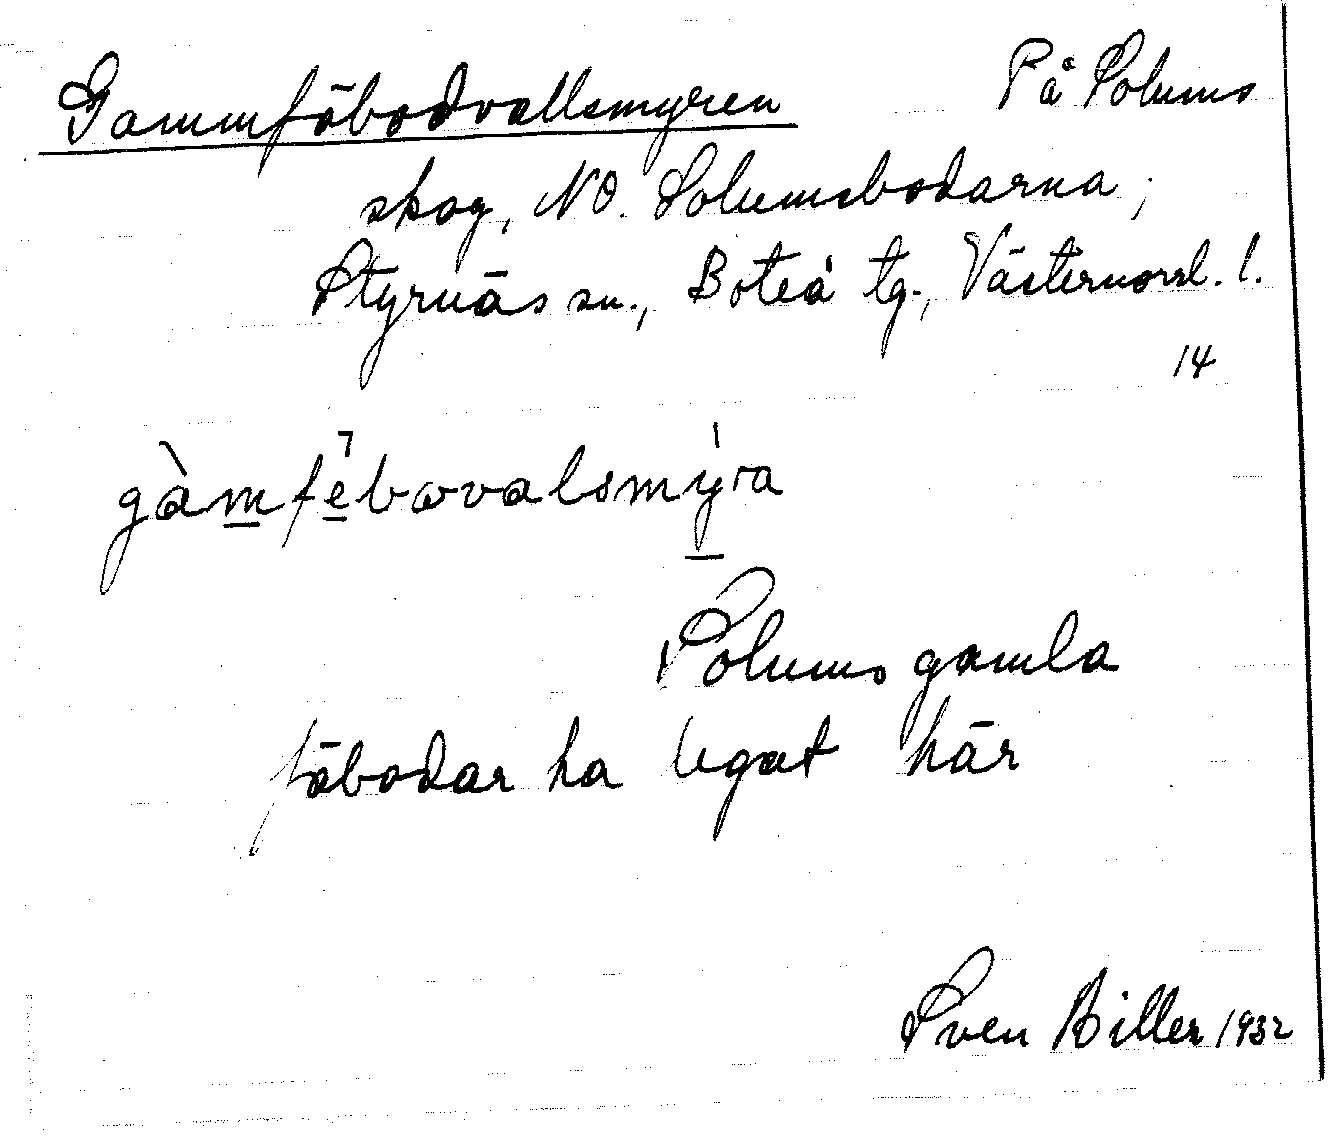 Gammfäbodvallsmyren På Solums
skog, NO. Solumsbodarna;
Styrnäs sn., Boteå tg., Västernorrl. l.
14
gàmfèbovalsmýra
Solums gamla
fäbodar ha legat här
Sven Biller 1932